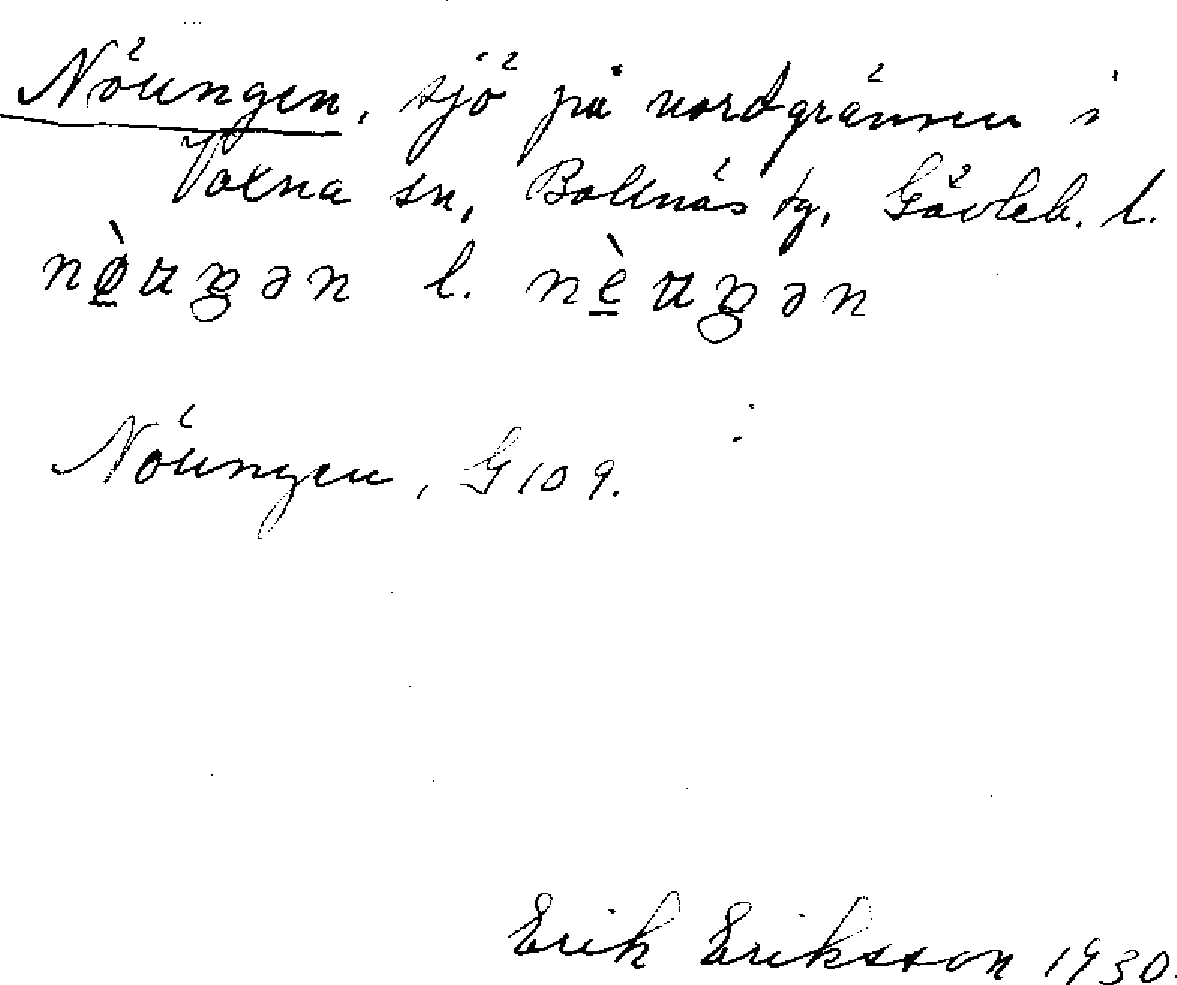 Nöungen, sjö på nordgränsen i
Voxna sn, Bollnäs tg, Gävleb. l.
l.
Nöungen, G 109.
Erik Eriksson 1930.